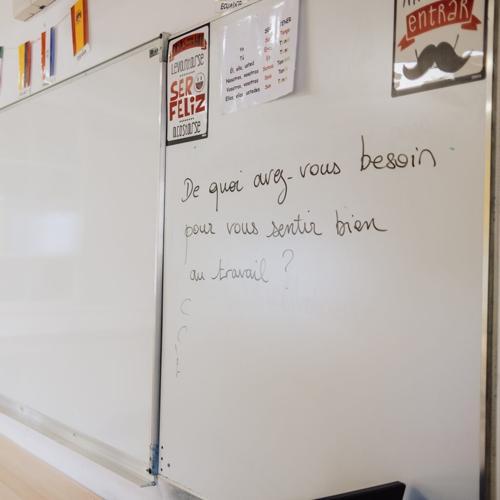 Levantarse
SER
FELIZ
acostarse
SER
TENER
Yo
Tú
Él, ella, usted
Nosotros, nosotras
Vosotros, vosotras
Ellos, ellas, ustedes
entrar
De quoi avez-vous besoin
pour vous sentir bien
au travail ?